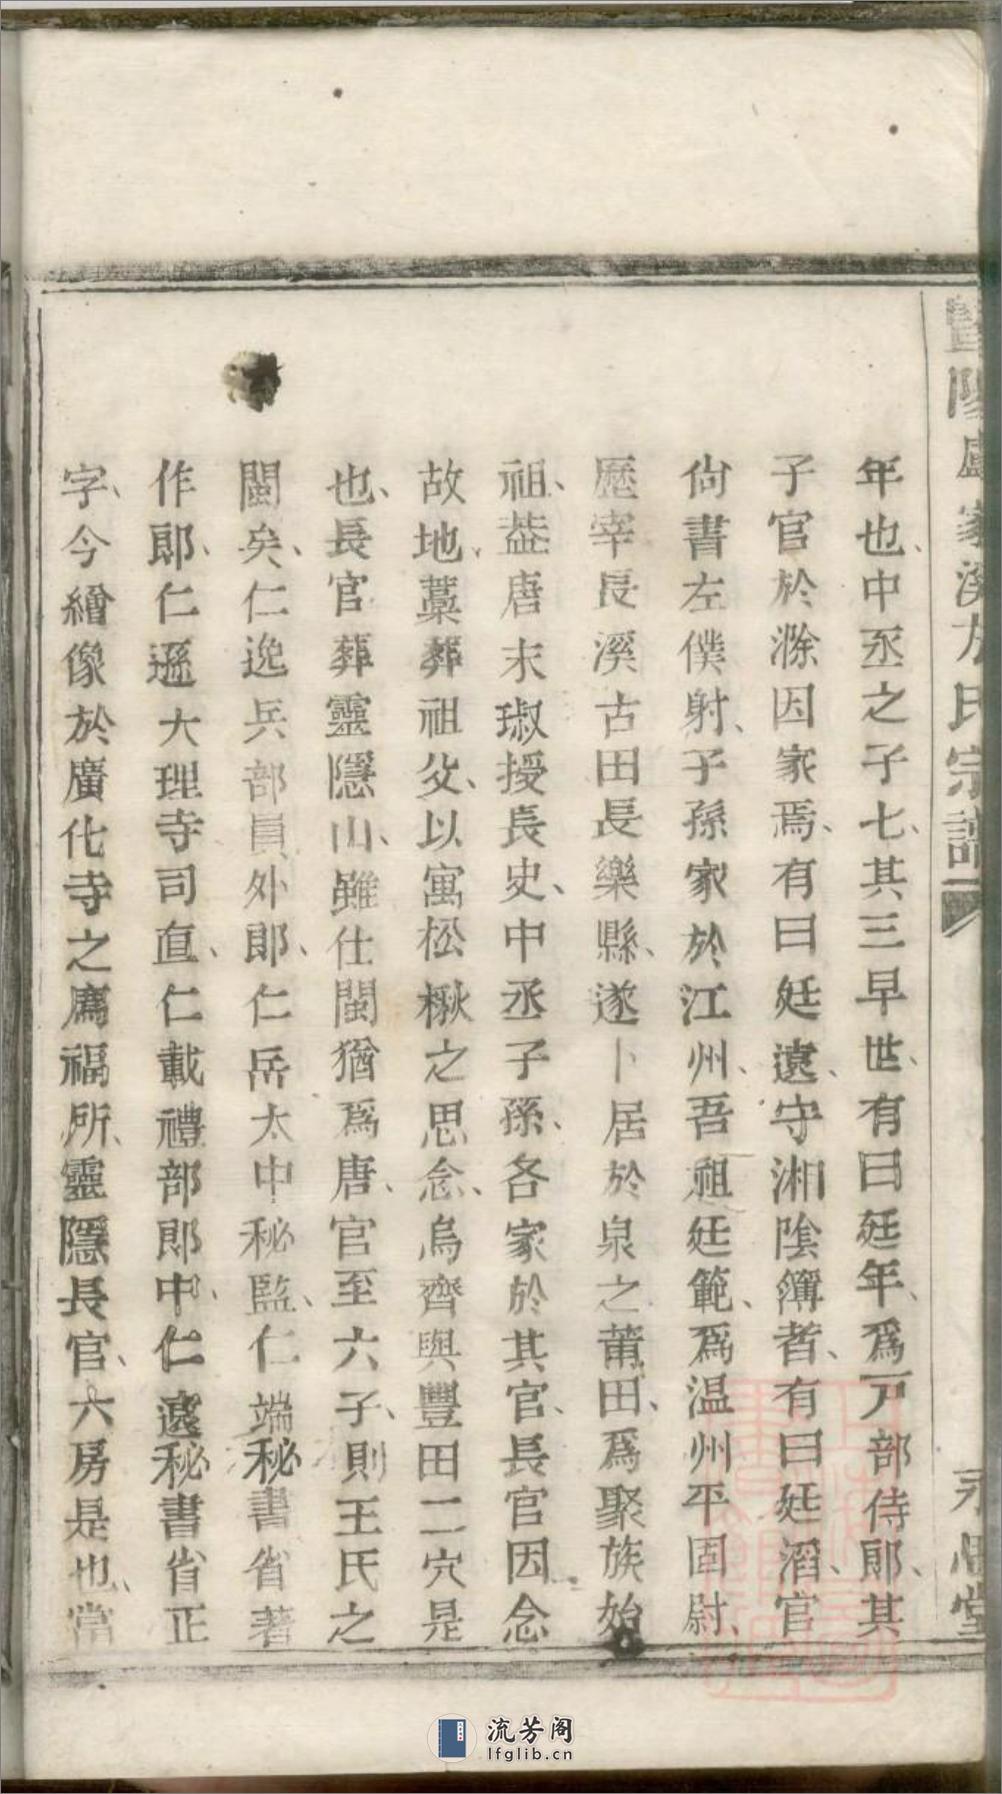 暨陽盧家溪方氏宗譜
永思堂
年也、中丞之子七、其三早世、有曰廷年、爲戸部侍郎、其
子官於滁因家焉、有曰廷遠、守湘陰簿者、有曰廷滔、官
尙書左僕射、子孫家於江州、吾祖廷範、爲温州平固尉、
歷宰長溪古田長樂縣、遂卜居於泉之莆田、爲聚族始
祖、葢唐末琡授長史、中丞子孫、各家於其官、長官因念
故地、藁葬祖父、以寓松楸之思念、烏齊與豐田二穴是
也、長官葬靈隱山、雖仕閩猶爲唐、官至六子、則王氏之
閩矣、仁逸兵部員外郎、仁岳太中秘監、仁端秘書省著
作郎、仁遜大理寺司直、仁載禮部郎中、仁遠秘書省正
字、今繪像於廣化寺之薦福所、靈隱長官、六房是也、當
流芳阁
lfglib.cn